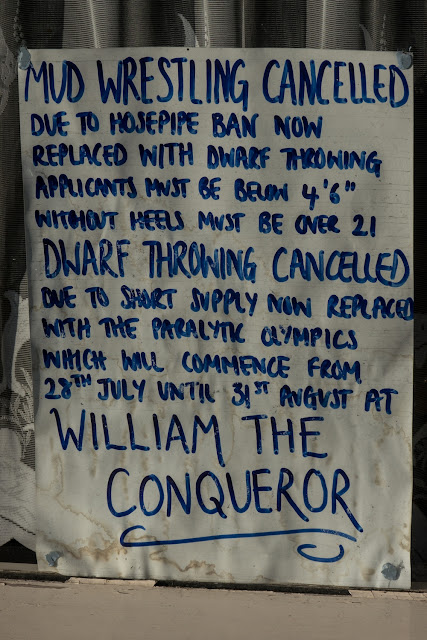 MUD WRESTLING CANCELLED
DUE TO HOSEPIPE BAN NOW
REPLACED WITH DWARF THROWING
APPLICANTS MUST BE BELOW 4'6"
WITHOUT HEELS MUST BE OVER 21
DWARF THROWING CANCELLED
DUE TO SHORT SUPPLY NOW REPLACED
WITH THE PARALYTIC OLYMPICS
WHICH WILL COMMENCE FROM
28TH JULY UNTIL 31ST AUGUST AT
WILLIAM THE
CONQUEROR